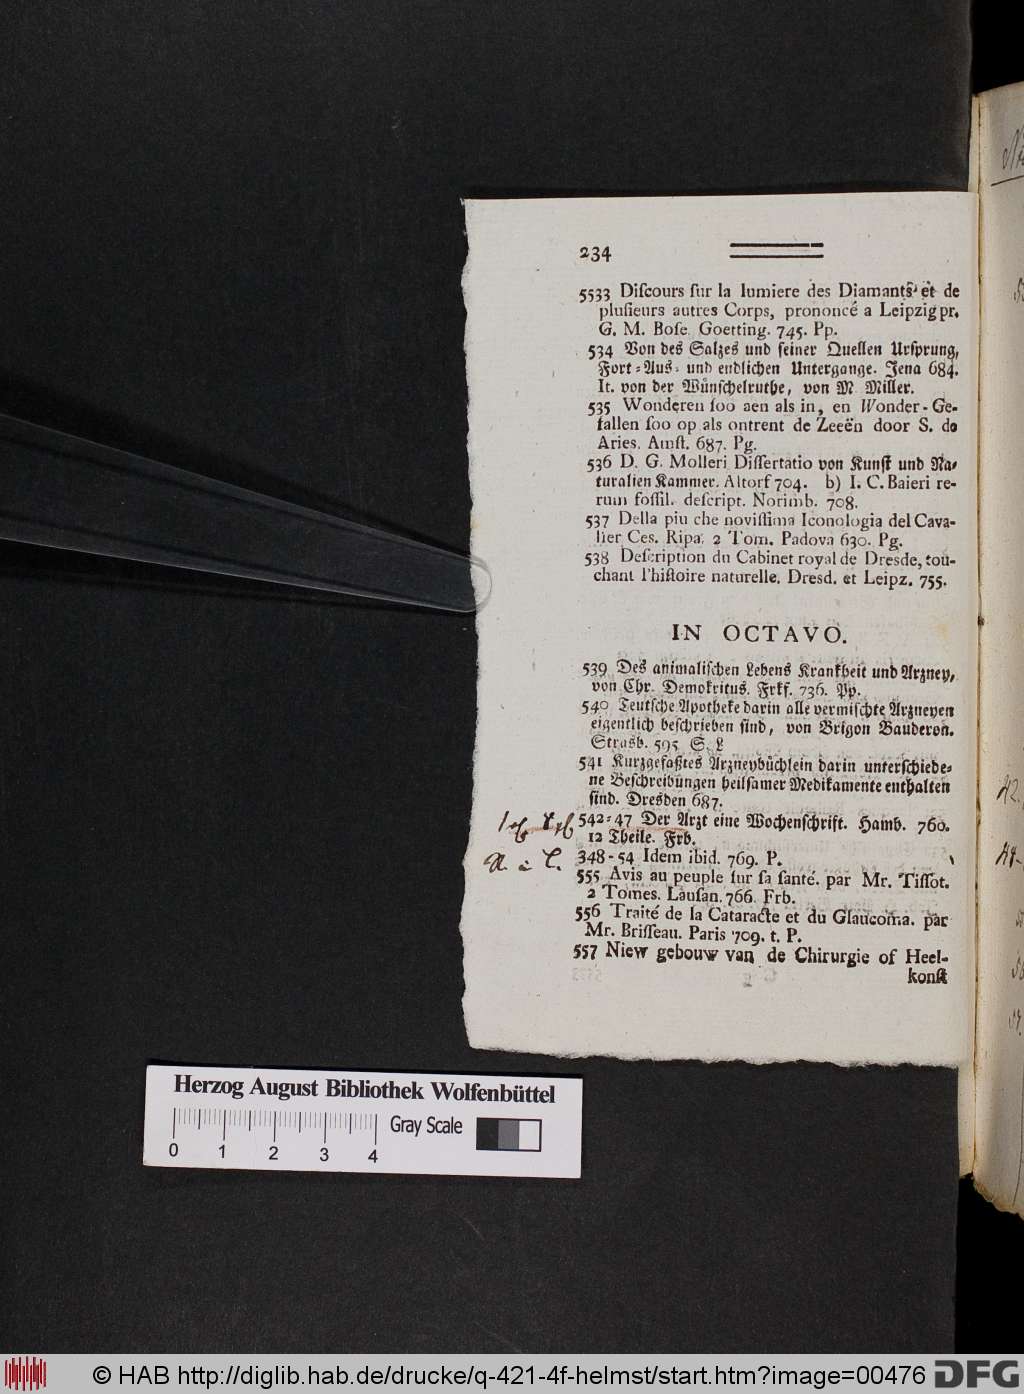 234
5533 Diſcours ſur la lumiere des Diamants et de
pluſieurs autres Corps, prononcé a Leipzig pr.
G. M. Boſe. Goetting. 745. Pp.
534 Von des Salzes und ſeiner Quellen Urſprung,
Fort-Aus- und endlichen Untergange. Jena 684.
It. von der Wůnſchelruthe, von M. Miller.
535 Wonderen ſoo aen als in, en Wonder-Ge-
fallen ſoo op als ontrent de Zeeën door S. de
Aries. Amſt. 687. Pg.
536 D. G. Molleri Diſſertatio von Kunſt und Na-
turalien Kammer. Altorf 704. b) I. C. Baieri re-
rum foſſil. deſcript. Norimb. 708.
537 Della piu che noviſſima Iconologia del Cava-
lier Ces. Ripa. 2 Tom. Padova 630. Pg.
538 Deſcription du Cabinet royal de Dresde, tou-
chant l'hiſtoire naturelle. Dresd. et Leipz. 755.
IN OCTAVO.
539 Des animaliſchen Lebens Krankheit und Arzney,
von Chr. Demokritus. Frkf. 736. Pp.
540 Teutſche Apotheke darin alle vermiſchte Arzneyen
eigentlich beſchrieben ſind, von Brigon Bauderon.
Strasb. 595 S. L
541 Kurzgefaßtes Arzneybůchlein darin unterſchiede-
ne Beſchreibungen heilſamer Medikamente enthalten
ſind. Dresden 687.
542-47 Der Arzt eine Wochenſchrift. Hamb. 760.
12 Theile. Frb.
348-54 Idem ibid. 769. P.
555 Avis au peuple ſur ſa ſanté. par Mr. Tiſſot.
2 Tomes. Lauſan. 766. Frb.
556 Traité de la Cataracte et du Glaucoma. par
Mr. Briſſeau. Paris 709. t. P.
557 Niew gebouw van de Chirurgie of Heel-
konſt
Herzog August Bibliothek Wolfenbüttel
Gray Scale
0 1 2 3 4
© HAB http://diglib.hab.de/drucke/q-421-4f-helmst/start.htm?image=00476 DFG